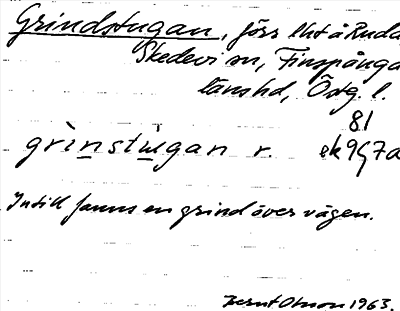 Grindstugan, förr lht å Ruda
Skedevi sn, Finspånga
läns hd, Östg. l.
81
grìnstùgan r. ek 9G7a
Intill fanns en grind över vägen.
Bernt Olsson 1963.